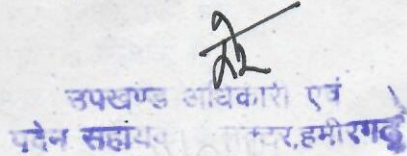 उपखण्ड अधिकारी एवं
पदेन सहायक क्टर,हमीरगढ़